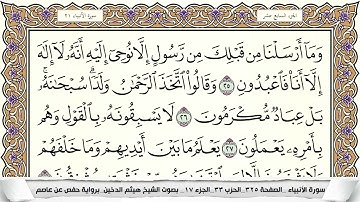 الجزء السابع عشر
سورة الأنبياء ٢١
وَمَآ أَرْسَلْنَا مِن قَبْلِكَ مِن رَّسُولٍ إِلَّا نُوحِىٓ إِلَيْهِ أَنَّهُۥ لَآ إِلَٰهَ
إِلَّآ أَنَا۠ فَٱعْبُدُونِ ٢٥ وَقَالُوا۟ ٱتَّخَذَ ٱلرَّحْمَٰنُ وَلَدًا ۗ سُبْحَٰنَهُۥ ۚ
بَلْ عِبَادٌ مُّكْرَمُونَ ٢٦ لَا يَسْبِقُونَهُۥ بِٱلْقَوْلِ وَهُم
بِأَمْرِهِۦ يَعْمَلُونَ ٢٧ يَعْلَمُ مَا بَيْنَ أَيْدِيهِمْ وَمَا خَلْفَهُمْ
سورة الأنبياء _ الصفحة ٣٢٥ _ الحزب ٣٣ _ الجزء ١٧ _ بصوت الشيخ هيثم الدخين _ برواية حفص عن عاصم